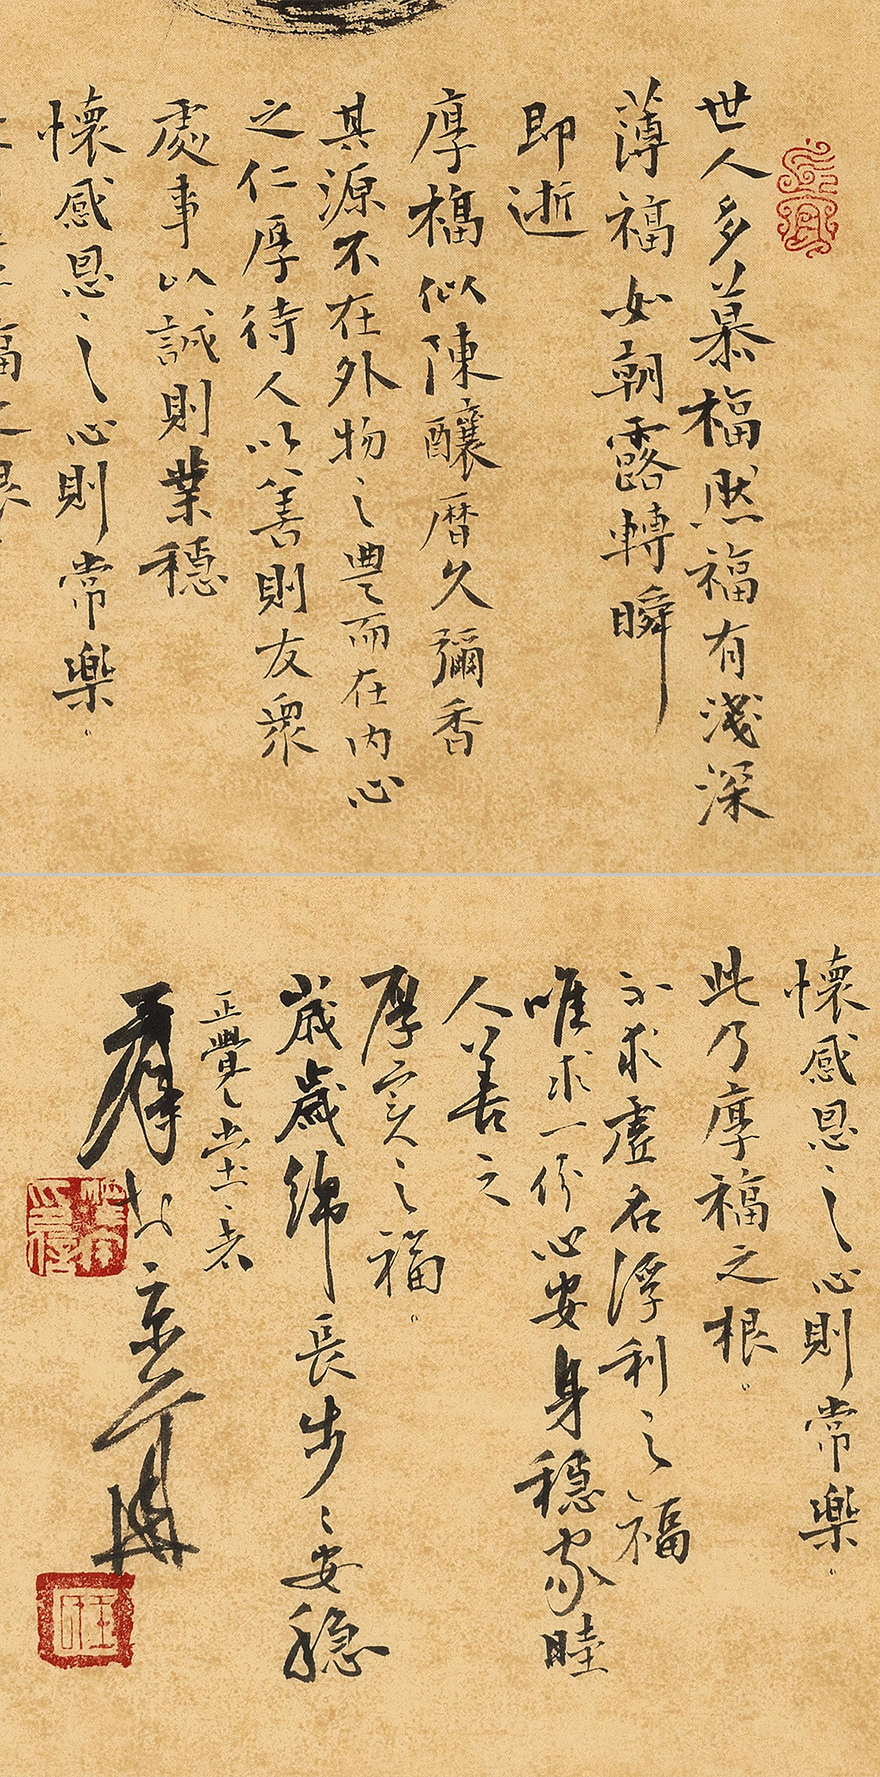 世人多慕福然福有淺深
薄福如朝露轉瞬
即逝
厚福似陳釀曆久彌香
其源不在外物之豊而在内心
之仁厚待人以善則友衆
處事以誠則業穩
懷感恩之心則常樂。
懷感恩之心則常樂。
此乃厚福之根。
不求虛名浮利之福
唯求一份心安身穩家睦
人善之
厚实之福。
歲歲綿長步步安穩
正覺堂主